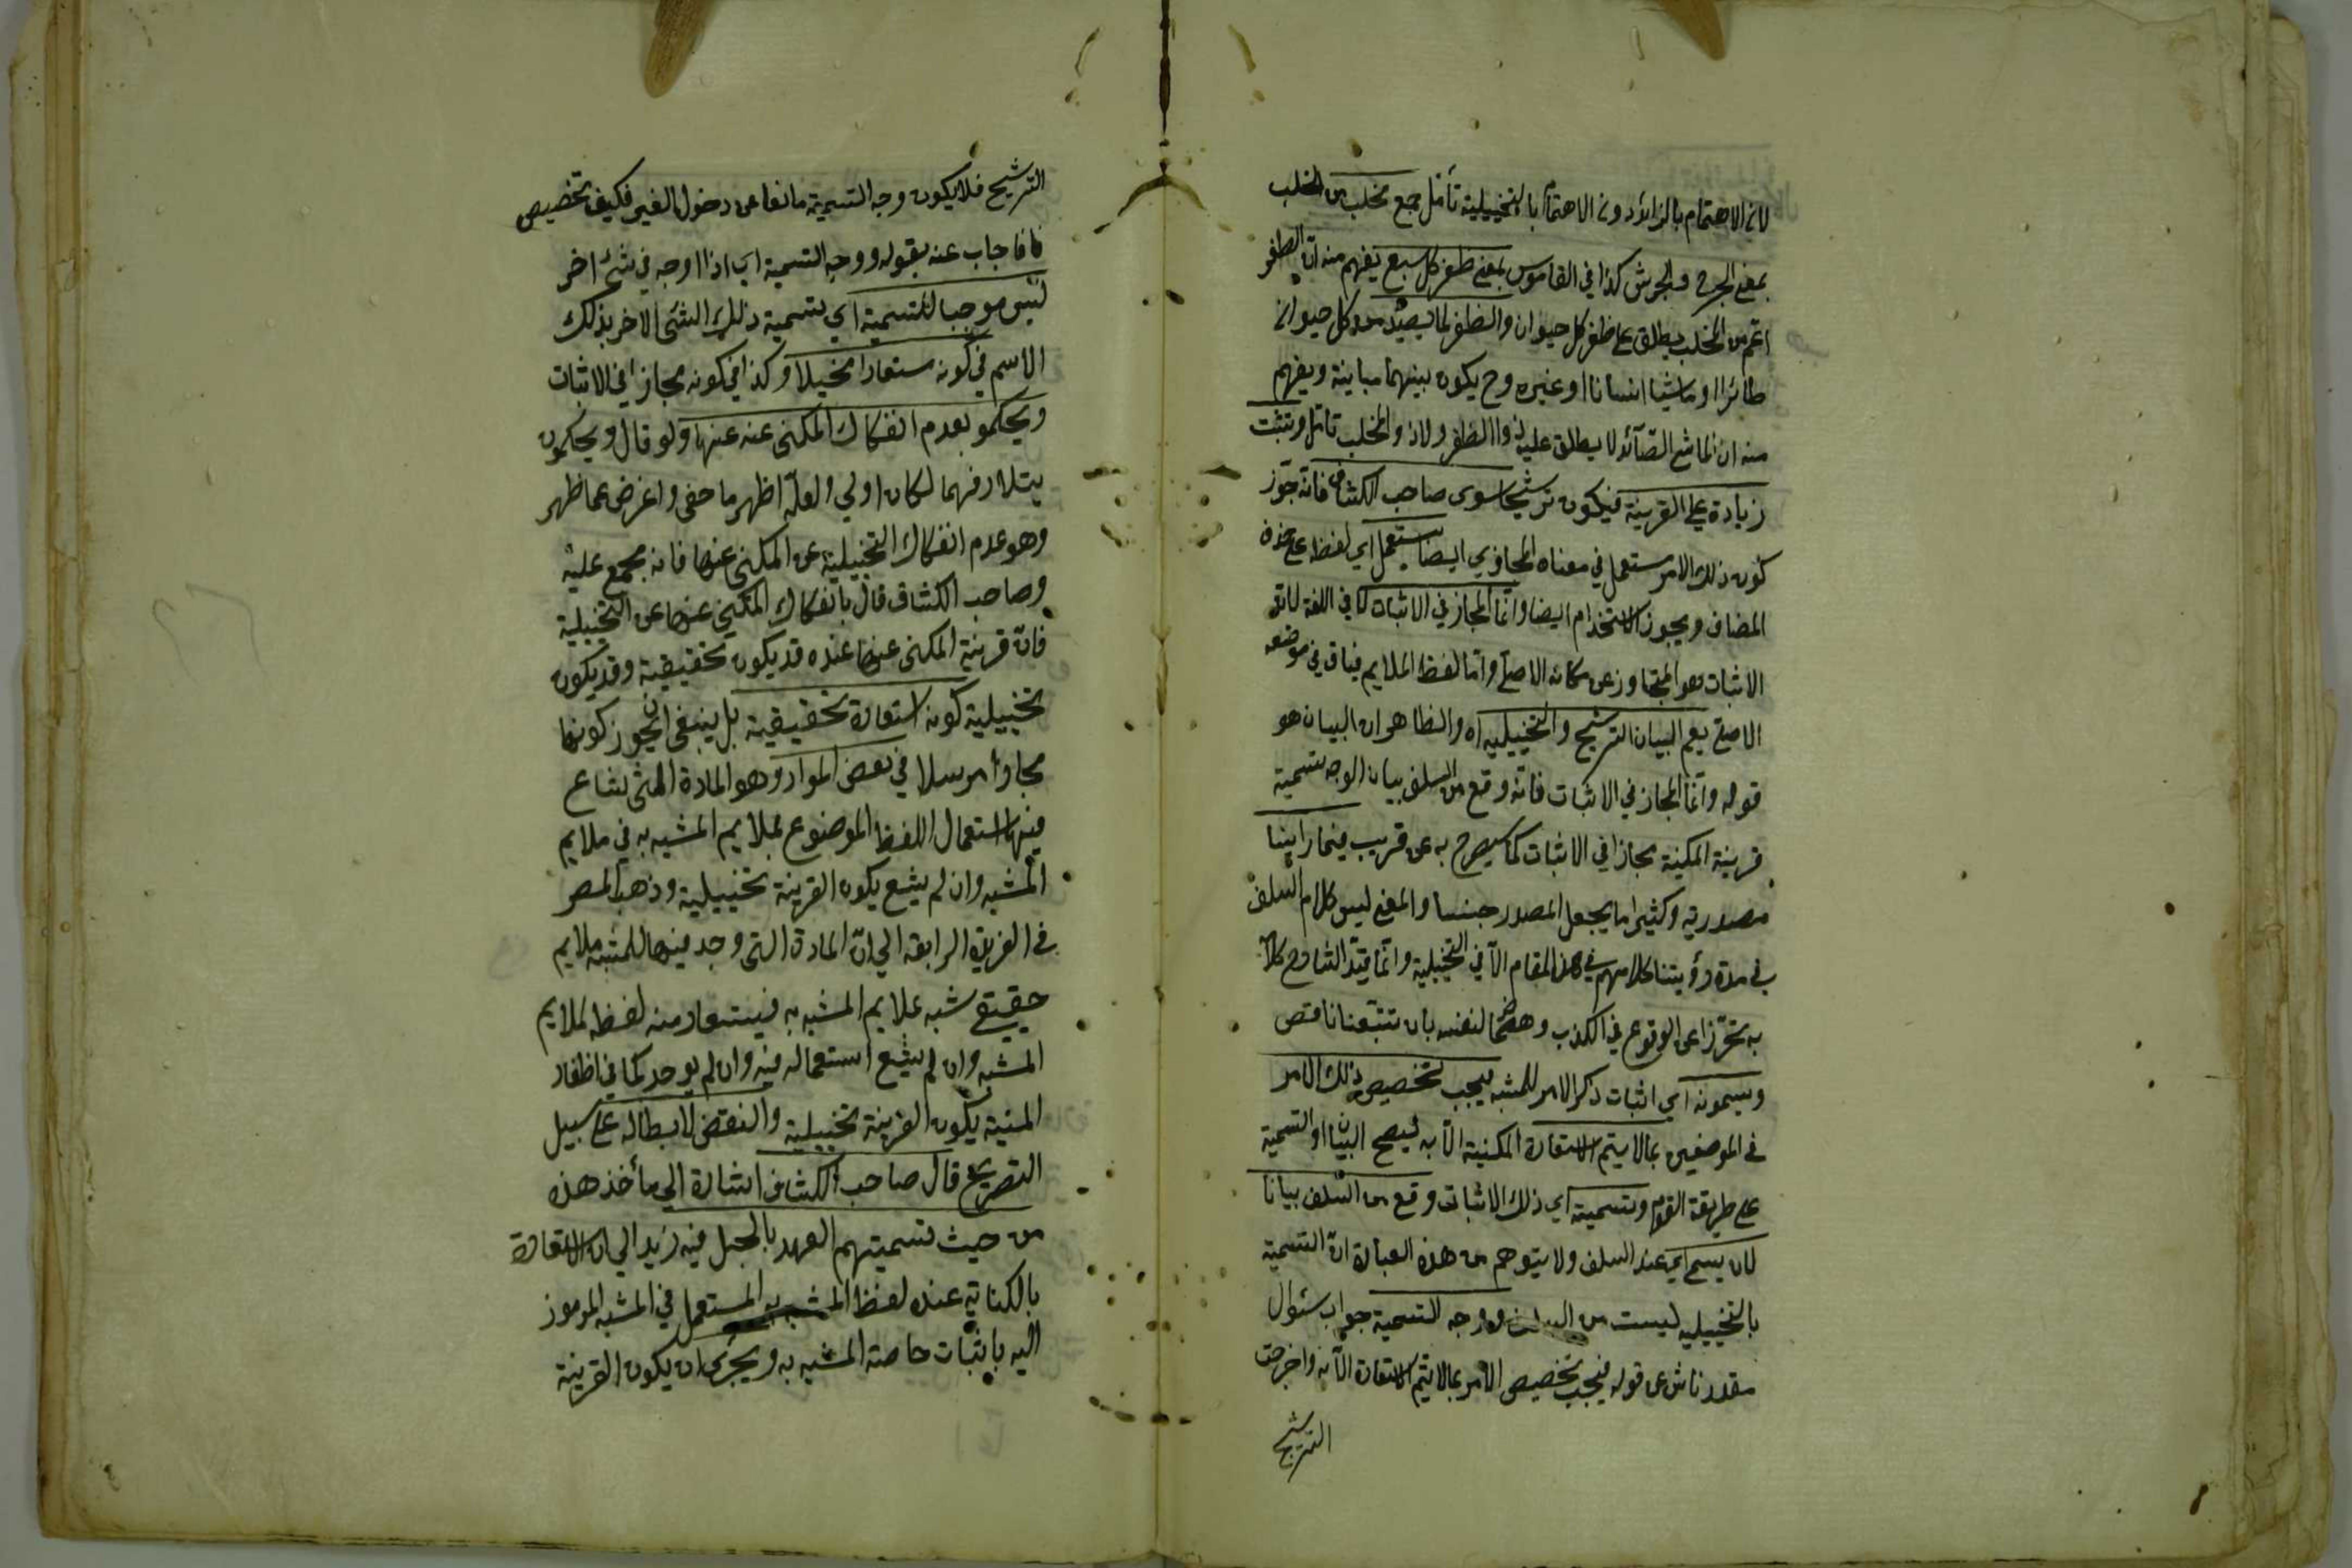 لان الاهتمام بالزائد دون الاهتمام بالتخييلية تأمل جمع مخلب من الخلب
بمعنى الجرح والجرش كذا في القاموس بمعنى ظفر كل سبع يفهم منه ان الظفر
اعم من المخلب يطلق على ظفر كل حيوان والظفر لما يصيد من كل حيوان
طائرا او ماشيا انسانا او غيره وح يكون بينهما مباينة ويفهم
منه ان الماشي الصائد لا يطلق عليه ذو الظفر ولا ذو المخلب تأمل وتثبت
زيادة على القرينة فيكون ترشيحا سوى صاحب الكشاف فانه جوز
كون ذلك الامر مستعمل في معناه المجازي ايضا يستعمل اي لفظ على حذف
المضاف ويجوز الاستخدام ايضا وانما المجاز في الاثبات كما في اللغة لان
الاثبات هو المتجاوز عن مكانه الاصلي واما لفظ الملايم فباق في موضعه
الاصلي يعم البيان الترشيح والتخييلية اه والظاهر ان البيان هو
قوله وانما المجاز في الاثبات فانه وقع من السلف بيان لوجه تسمية
قرينة المكنية مجازا في الاثبات كما سيصرح به عن قريب فيما راينا
مصدرية وكثيرا ما يجعل المصدر جنسا والمعنى ليس كلام السلف
في مدة رؤيتنا كلامهم في هذا المقام الا في التخييلية وانما قيد الشارح كلامه
به تحرزا عن الوقوع في الكذب وهضما لنفسه بان تتبعنا ناقص
ويسمونه اي اثبات ذكر الامر للمشبه فيجب تخصيص ذلك الامر
في الموضعين بما لا يتم الاستعارة المكنية الا به ليصح البيان او التسمية
على طريقة القوم وتسميته اي ذلك الاثبات وقع من السلف بيانا
لان يسمى اي عند السلف ولا يتوهم من هذه العبارة ان التسمية
بالتخييلية ليست من السلف ووجه التسمية جواب سئوال
مقدر ناش عن قوله فيجب تخصيص الامر بما لا يتم الاستعارة الا به واخرجت
الترشيح
الترشيح فلا يكون وجه التسمية مانعا عن دخول الغير فكيف تخصيص
فاجاب عنه بقوله ووجه التسمية اي اذا اوجه في شئ اخر
ليس موجبا للتسمية اي تسمية ذلك الشئ الاخر بذلك
الاسم في كونه مستعارا تخييلا وكذا في كونه مجازا في الاثبات
ويحكمو بعدم انفكاك المكنى عنه عنها ولو قال ويحكمون
بتلازمهما لكان اولى ولعله اظهر ما خفى واعرض عما ظهر
وهو عدم انفكاك التخييلية عن المكنى عنها فانه مجمع عليه
وصاحب الكشاف قال بانفكاك المكنى عنها عن التخييلية
فان قرينة المكنى عنها عنده قد يكون تحقيقية وقد يكون
تخييلية كونه استعارة تحقيقية بل ينبغي ان يجوز كونها
مجازا مرسلا في بعض المواد وهو المادة التي شاع
فيها استعمال اللفظ الموضوع لملايم المشبه به في ملايم
المشبه وان لم يشع يكون القرينة تخييلية وذهب المص
في الفريدة الرابعة الى ان المادة التي وجد فيها للمشبه ملايم
حقيقي شبه بملايم المشبه به فيستعار منه لفظ لملايم
المشبه وان لم يشيع استعماله فيه وان لم يوجد كما في اظفار
المنية يكون القرينة تخييلية والنقض لابطاله على سبيل
التصريح قال صاحب الكشاف اشارة الى مأخذ هذه
من حيث تسميتهم العهد بالحبل فيه زيد الى ان الاستعارة
بالكناية عنده لفظ المشبه به المستعمل في المشبه المرموز
اليه باثبات خاصة المشبه به ويجوز ان يكون القرينة